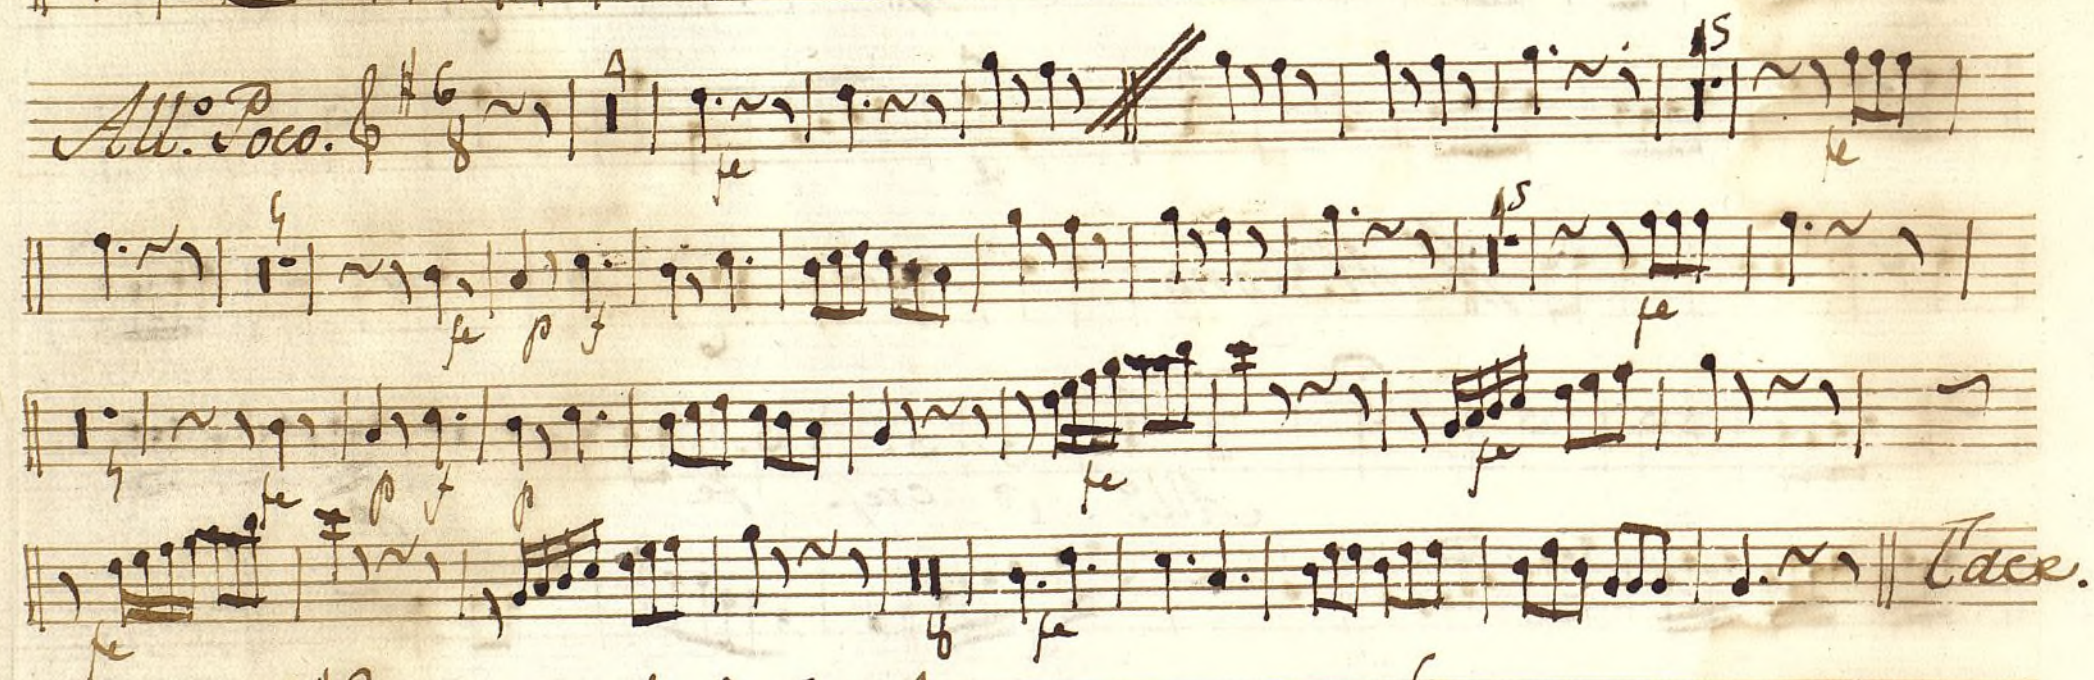 All.º Poco. 6 8 4 fe 15 fe
4 fe p f 15 fe
4 fe p f p fe fe
fe 8 fe Tace.